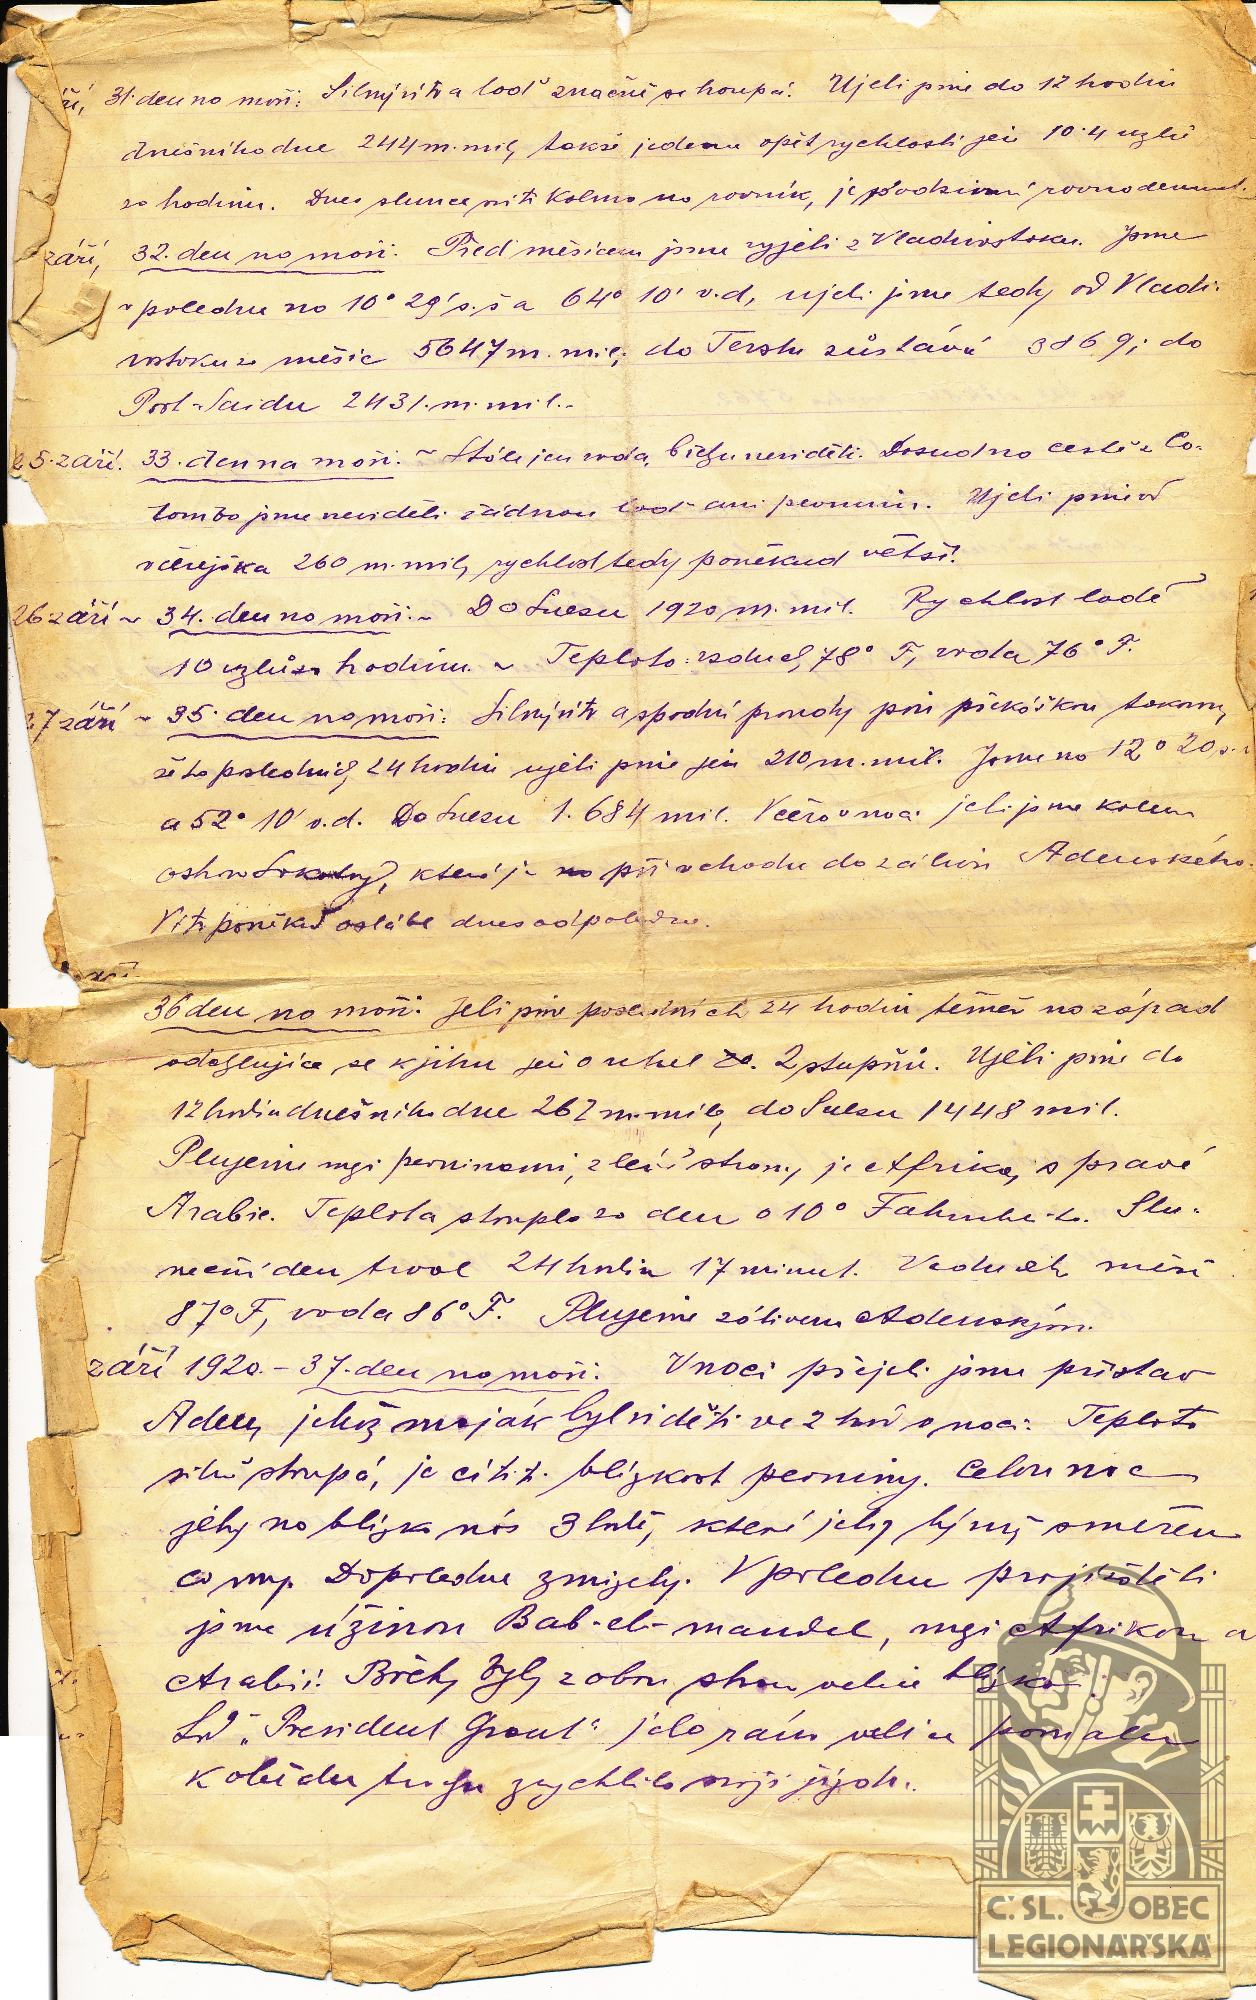 ří, 31. den na moři: Silný vítr a loď značně se houpá. Ujeli jsme do 12 hodin
dnešního dne 244 m. mil, takže jedeme opět rychlostí jen 10.4 uzlů
za hodinu. Dnes slunce svítí kolmo na rovník, je podzimní rovnodennost.
září, 32. den na moři: Před měsícem jsme vyjeli z Vladivostoku. Jsme
v poledne na 10° 29' s.š a 64° 10' v.d, ujeli jsme tedy od Vladi-
vostoku za měsíc 5647 m. mil; do Terstu zůstává 3869; do
Port-Saidu 2431. m. mil.-
25. září. 33. den na moři. ~ Stále jen voda, břehu neviděti. Dosud na cestě z Co-
lombo jsme neviděli žádnou loď ani pevninu. Ujeli jsme od
včerejška 260 m. mil, rychlost tedy poněkud větší.
26 září ~ 34. den na moři. ~ Do Suezu 1920 m. mil. Rychlost lodě
10 uzlů za hodinu. ~ Teplota: vzduch 78° F, voda 76° F.
27 září ~ 35. den na moři: Silný vítr a spodní proudy jsou překážkou takovou,
že za posledních 24 hodin ujeli jsme jen 210 m. mil. Jsme na 12° 20 s.
a 52° 10' v.d. Do Suezu 1.684 mil. Večer v noci jeli jsme kolem
ostrova Sokotry, který je při vchodu do zálivu Adenského.
Vítr poněkud oslábl dnes odpoledne.
září.
36 den na moři: Jeli jsme posledních 24 hodin téměř na západ
odchylujíce se k jihu jen o úhel 2 stupňů. Ujeli jsme do
12 hodin dnešního dne 262 m. mil, do Suezu 1448 mil.
Plujeme mezi pevninami, z levé strany je Afrika, s pravé
Arabie. Teplota stoupla za den o 10° Fahrenheita. Slu-
neční den trval 24 hodin 17 minut. Vzduch měří
87° F, voda 86° F. Plujeme zálivem Adenským.
září 1920. - 37. den na moři: V noci přejeli jsme přístav
Aden, jehož maják byl viděti ve 2 hod v noci. Teplota
silně stoupá, je cítiti blízkost pevniny. Celou noc
jely na blízku nás 3 lodě, které jely týmž směrem
co my. Dopoledne zmizely. V poledne projížděli
jsme úžinou Bab-el-mandel, mezi Afrikou a
Arabií. Břehy byly z obou stran velice blízko.
Loď „President Grant" jela ráno velice pomalu
k obědu trochu zrychlila svoji jízdu.
Č. SL. OBEC
LEGIONÁŘSKÁ